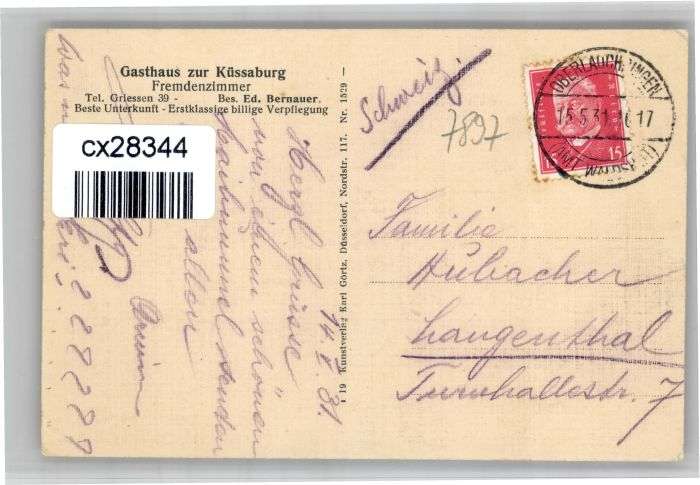 Gasthaus zur Küssaburg
Fremdenzimmer
Tel. Griessen 39 - Bes. Ed. Bernauer.
Beste Unterkunft - Erstklassige billige Verpflegung
cx28344
14. V. 31.
Herzl. Grüsse
von einem schönen
Maibummel senden
allen
Was
t 19 Kunstverlag Karl Görtz, Düsseldorf, Nordstr. 117. Nr. 1529 -
Schweiz.
7897
OBERLAUCHRINGEN
15.5.31 17
(AMT WALDSHUT)
15
Familie
Hubacher
Langenthal
Turnhallestr. 7